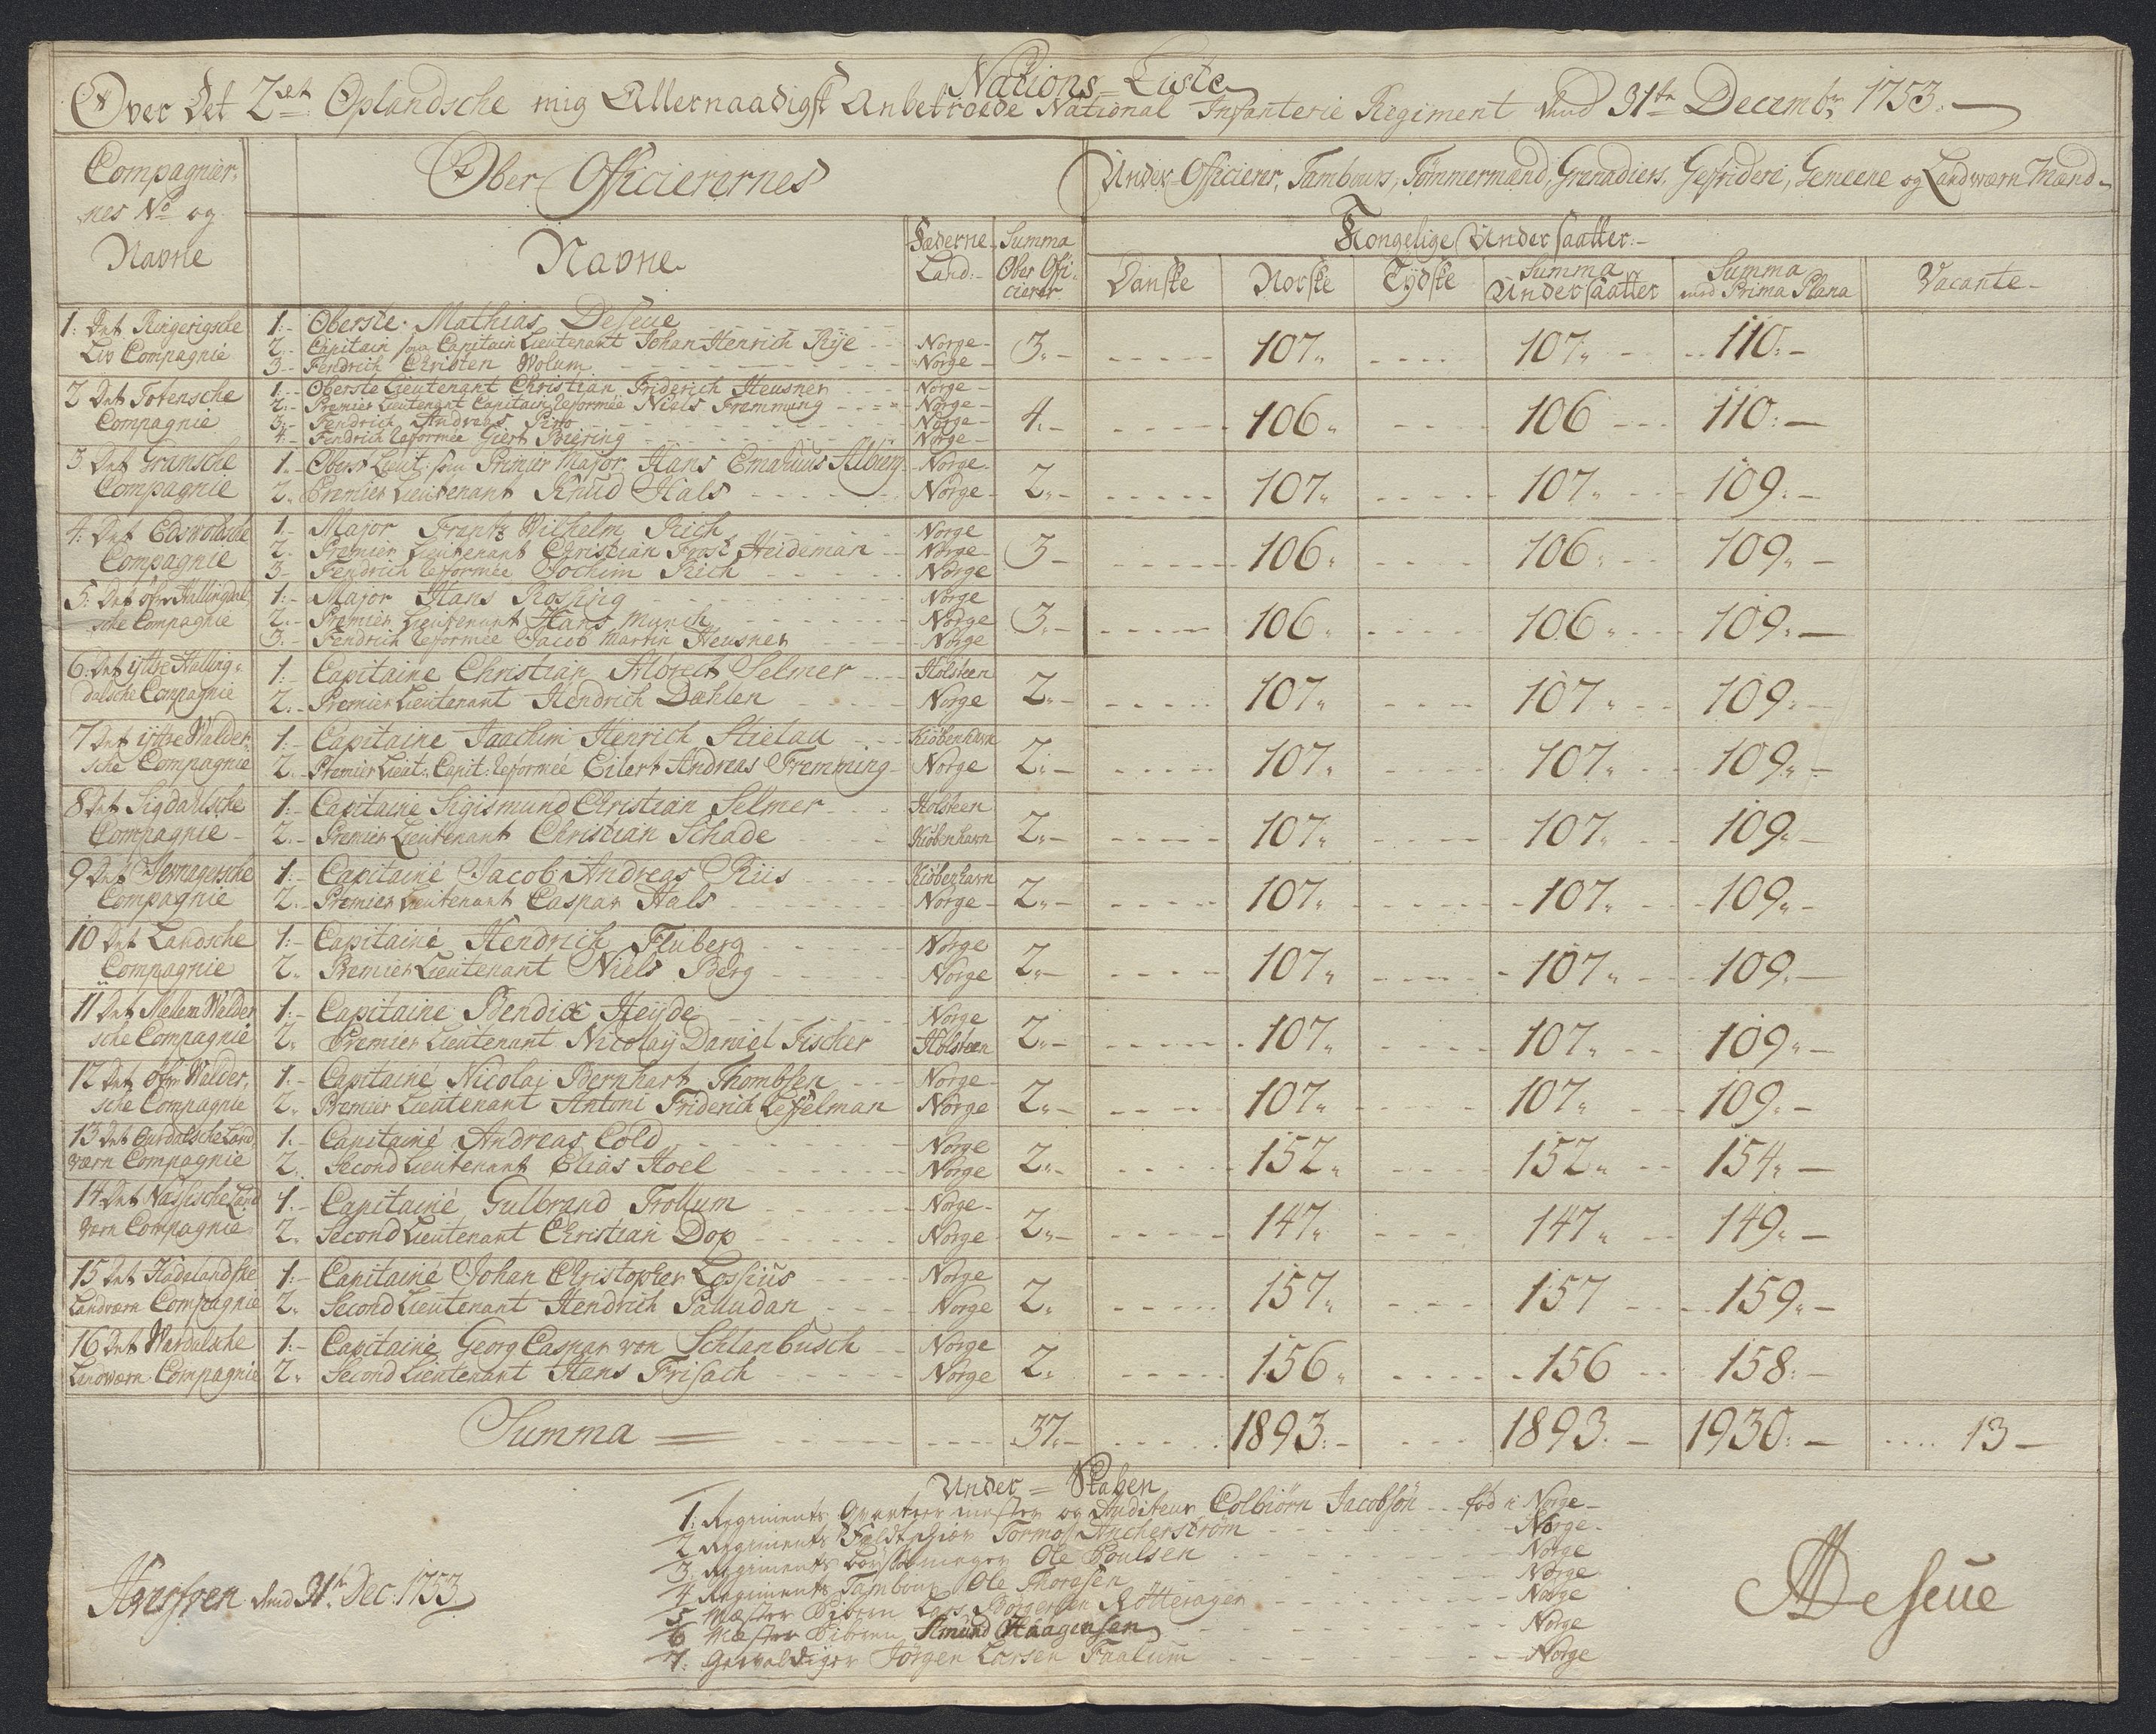 Nations-Liste
Over Det 2det Oplandsche mig Allernaadigst Anbetroede National Infanterie Regiment dend 31te Decembr 1753.
Compagnier-
nes No og
Navne
Ober Officierernes
Navne
Fæderne
Land:
Summa
Ober Offi-
cierer
Under Officierer, Tambours, Tømmermænd, Grenadiers, Gefridere, Gemeene og Landværn Mænd
Kongelige Undersaatter
Danske
Norske
Tydske
Summa
Undersaatter
Summa
med Prima Plana
Vacante
1: Det Ringerigsche
Liv Compagnie
1: Oberste Mathias DeSeue
2: Capitain som Capitain Lieutenant Johan Henrich Rye Norge
3: Fendrich Christen Wolum Norge
3 107 107 110
2 Det Totensche
Compagnie
1: Oberste Lieutenant Christian Friderich Heusner Norge
2: Premier Lieutenant Capitain Reformée Niels Fremming Norge
3: Fendrich Andreas Norge
4: Fendrich Reformée Giert Biering Norge
4 106 106 110
3 Det Gransche
Compagnie
1: Oberst Lieut: som Premier Major Hans Emahuus Norge
2: Premier Lieutenant Knud Hals Norge
2 107 107 109
4: Det Edswoldsche
Compagnie
1: Major Frantz Wilhelm Rich Norge
2: Premier Lieutenant Christian Frost Heideman Norge
3: Fendrich Reformée Jochim Rich Norge
3 106 106 109
5: Det øfre Hallingdal-
sche Compagnie
1: Major Hans Rosing Norge
2: Premier Lieutenant Hans Munch Norge
3: Fendrich Reformée Jacob Martin Heusner Norge
3 106 106 109
6: Det ijttre Halling-
dalsche Compagnie
1: Capitaine Christian Albrect Selmer Holsteen
2: Premier Lieutenant Hendrich Dæhlen Norge
2 107 107 109
7 Det ijttre Walder-
sche Compagnie
1: Capitaine Jaachim Henrich Stielau Kiøbenhavn
2: Premier Lieut: Capit: Reformeé Eilert Andreas Fremming Norge
2 107 107 109
8 Det Sigdahlsche
Compagnie
1: Capitaine Sigismund Christian Selmer Holsteen
2: Premier Lieutenant Christian Schade Kiøbenhavn
2 107 107 109
9 Det Jevnagersche
Compagnie
1: Capitainé Jacob Andreas Riis Kiøbenhavn
2: Premier Lieutenant Caspar Hals Norge
2 107 107 109
10 Det Landsche
Compagnie
1: Capitainé Hendrich Fluberg Norge
2: Premier Lieutenant Niels Berg Norge
2 107 107 109
11 Det Walder
sche Compagnie
1: Capitaine Bendix Heyde Norge
2: Premier Lieutenant Nicolay Daniel Fischer Holsteen
2 107 107 109
12 Det øfre Walder-
sche Compagnie
1: Capitainé Nicolai Bernhart Thombsen Norge
2: Premier Lieutenant Antoni Friderich Leffelman Norge
2 107 107 109
13 Det Aurdalsche Land
værn Compagnie
1: Capitainé Andreas Cold Norge
2: Second Lieutenant Elias Hoel Norge
2 152 152 154
14 Det Næssische Land
værn Compagnie
1: Capitainé Gulbrand Trollum Norge
2: Second Lieutenant Christian Dop Norge
2 147 147 149
15 Det Hadelandske
Landværn Compagnie
1: Capitainé Johan Christopher Lossius Norge
2: Second Lieutenant Hendrich Palludan Norge
2 157 157 159
16 Det Wardalsche
Landværn Compagnie
1: Capitainé Georg Caspar von Schlanbusch Norge
2: Second Lieutenant Hans Frisach Norge
2 156 156 158
Summa 37 1893 1893 1930 13
Under-Staben
1: Regiments Qvarteer mester og Auditeur Colbiørn Jacobsøn fød i Norge
2 Regiments Feldtskiær Tormos Ancherstrøm Norge
3 Regiments Ole Poulsen Norge
4 Regiments Tambour Ole Thoresen Norge
5 Mæster Lars Borgersen Norge
6 Mæster Amund Haagensen Norge
7: Gevaldiger Jørgen Larsen Faalum Norge
dend 31te Dec: 1753
MDeSeue